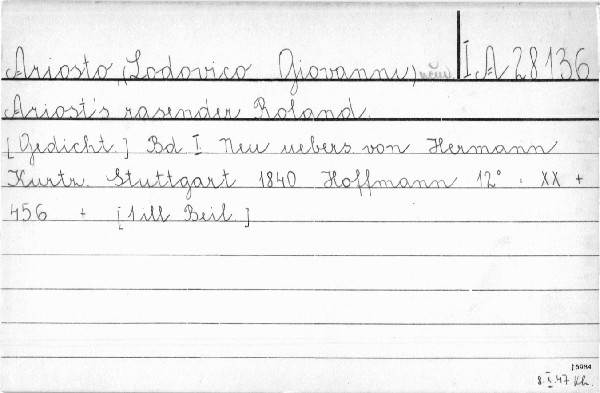 Ariosto, (Lodovico Giovanni) I A 28136
Ariost's rasender Roland.
[Gedicht.] Bd I. Neu uebers. von Hermann
Kurtz. Stuttgart 1840 Hoffmann 12° . XX +
456 + [1 ill Beil.]
8.X.47 Kh.